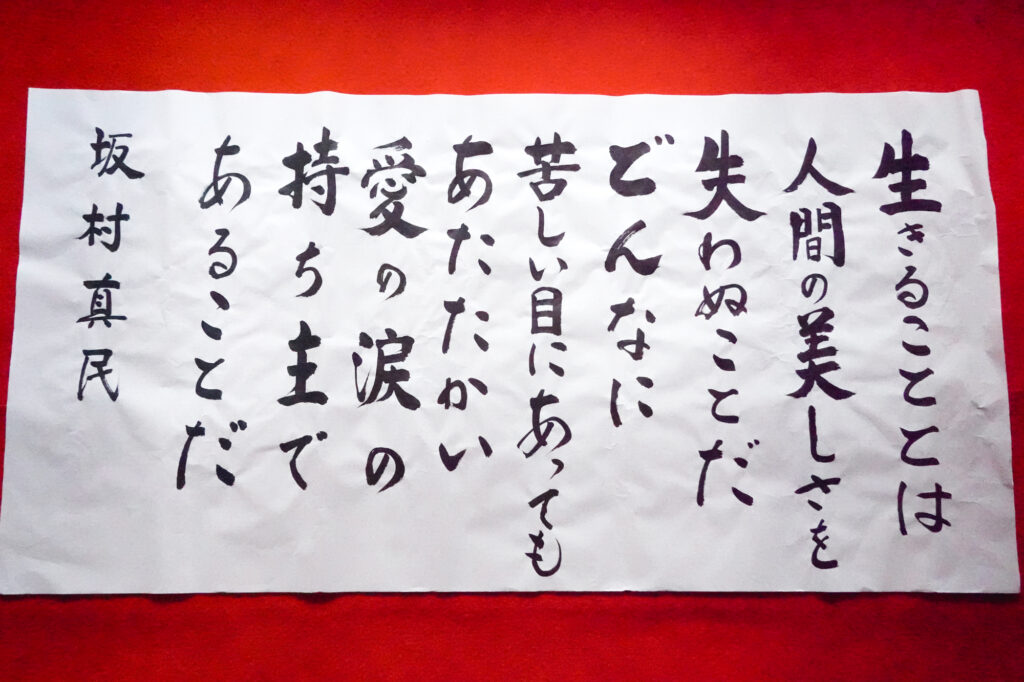 生きることは
人間の美しさを
失わぬことだ
どんなに
苦しい目にあっても
あたたかい
愛の涙の
持ち主で
あることだ
坂村真民